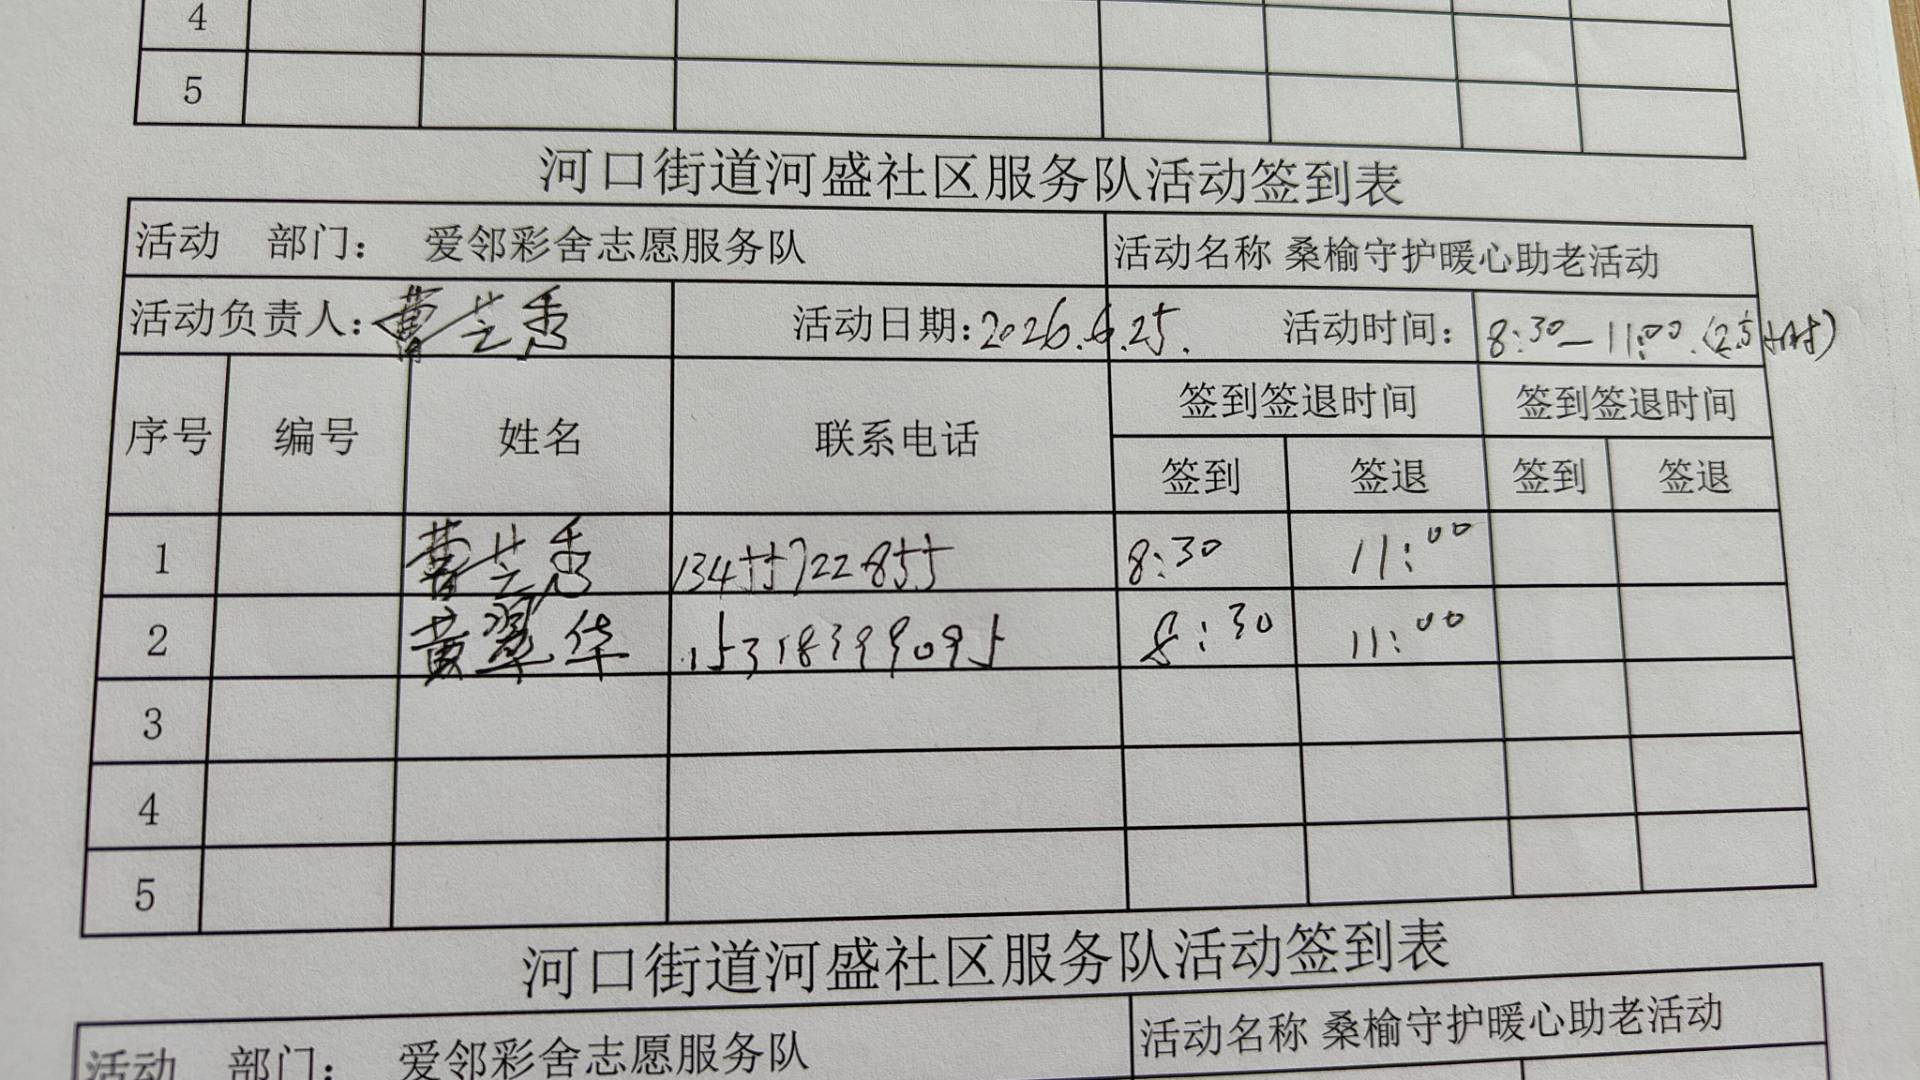 4
5
河口街道河盛社区服务队活动签到表
活动 部门： 爱邻彩舍志愿服务队 活动名称 桑榆守护暖心助老活动
活动负责人：曹兰香 活动日期：2026.6.25. 活动时间： 8:30—11:00.(2.5小时)
序号 编号 姓名 联系电话 签到签退时间 签到签退时间
签到 签退 签到 签退
1 曹兰香 13455722855 8:30 11:00
2 黄翠华 15318399095 8:30 11:00
3
4
5
河口街道河盛社区服务队活动签到表
活动 部门： 爱邻彩舍志愿服务队 活动名称 桑榆守护暖心助老活动